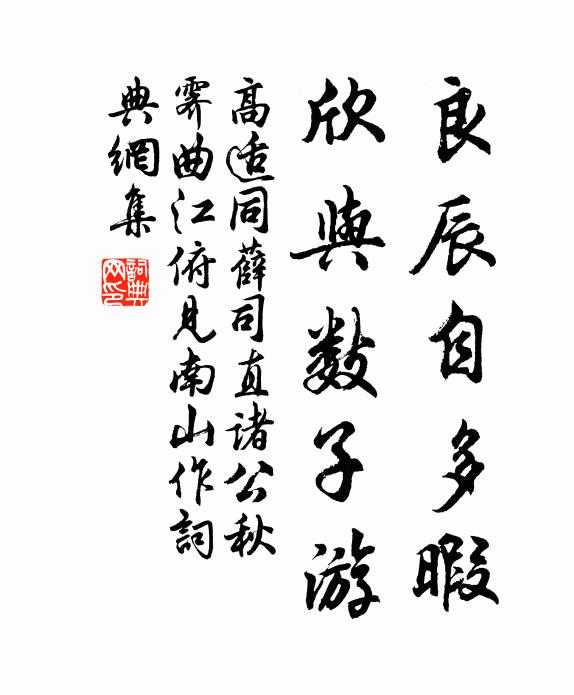 良辰自多暇
欣與數子游
高适同薛司直諸公秋
霽曲江俯見南山作詞
典網集
詞典
网印